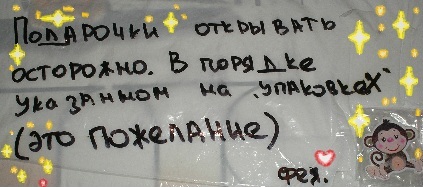 Подарочки открывать
осторожно. В порядке
указанном на „упаковках“
(это пожелание)
фея.